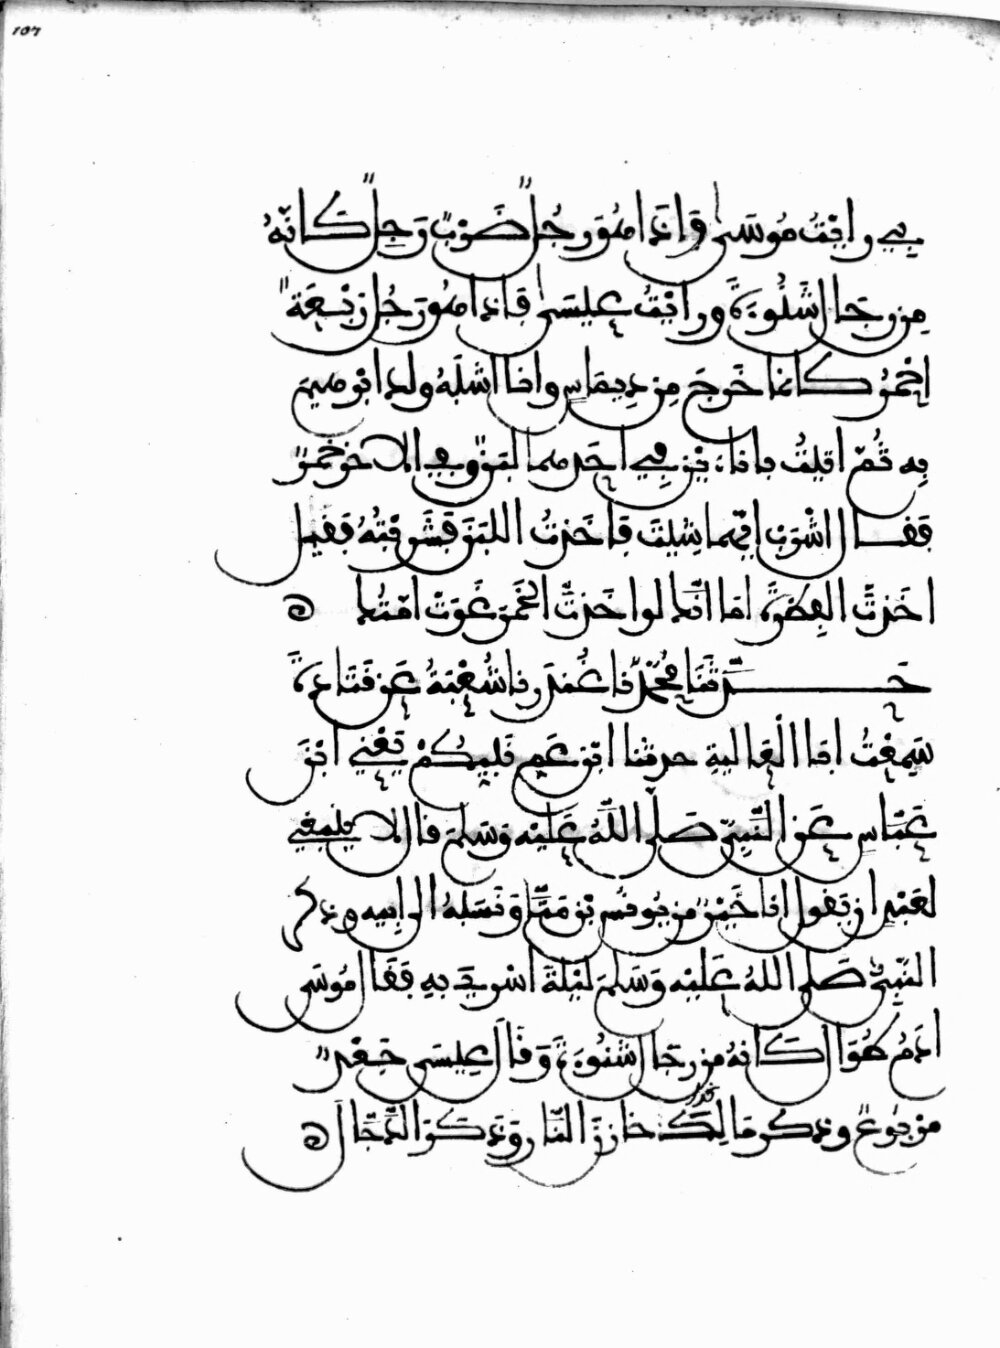 107
بي رايت موسى فاذا هو رجل ضرب رجل كانه
من رجال شنوءة ورايت عيسى فاذا هو رجل ربعة
احمر كانما خرج من ديماس وانا اشبه ولد ابرهيم
به ثم اتيت باناءين في احدهما لبن وفي الاخر خمر
فقال اشرب ايهما شيت فاخذت اللبن فشربته فقيل
اخذت الفطرة اما انك لو اخذت الخمر غوت امتك
حدثنا محمد نا غندر نا شعبة عن قتادة
سمعت ابا العالية حدثنا ابن عم نبيكم يعني ابن
عباس عن النبي صلى الله عليه وسلم قال لا ينبغي
لعبد ان يقول انا خير من يونس بن متى ونسبه الى ابيه وذكر
النبي صلى الله عليه وسلم ليلة اسري به فقال موسى
ادم طوال كانه من رجال شنوءة وقال عيسى جعد
مربوع وذكر مالك خازن النار وذكر الدجال